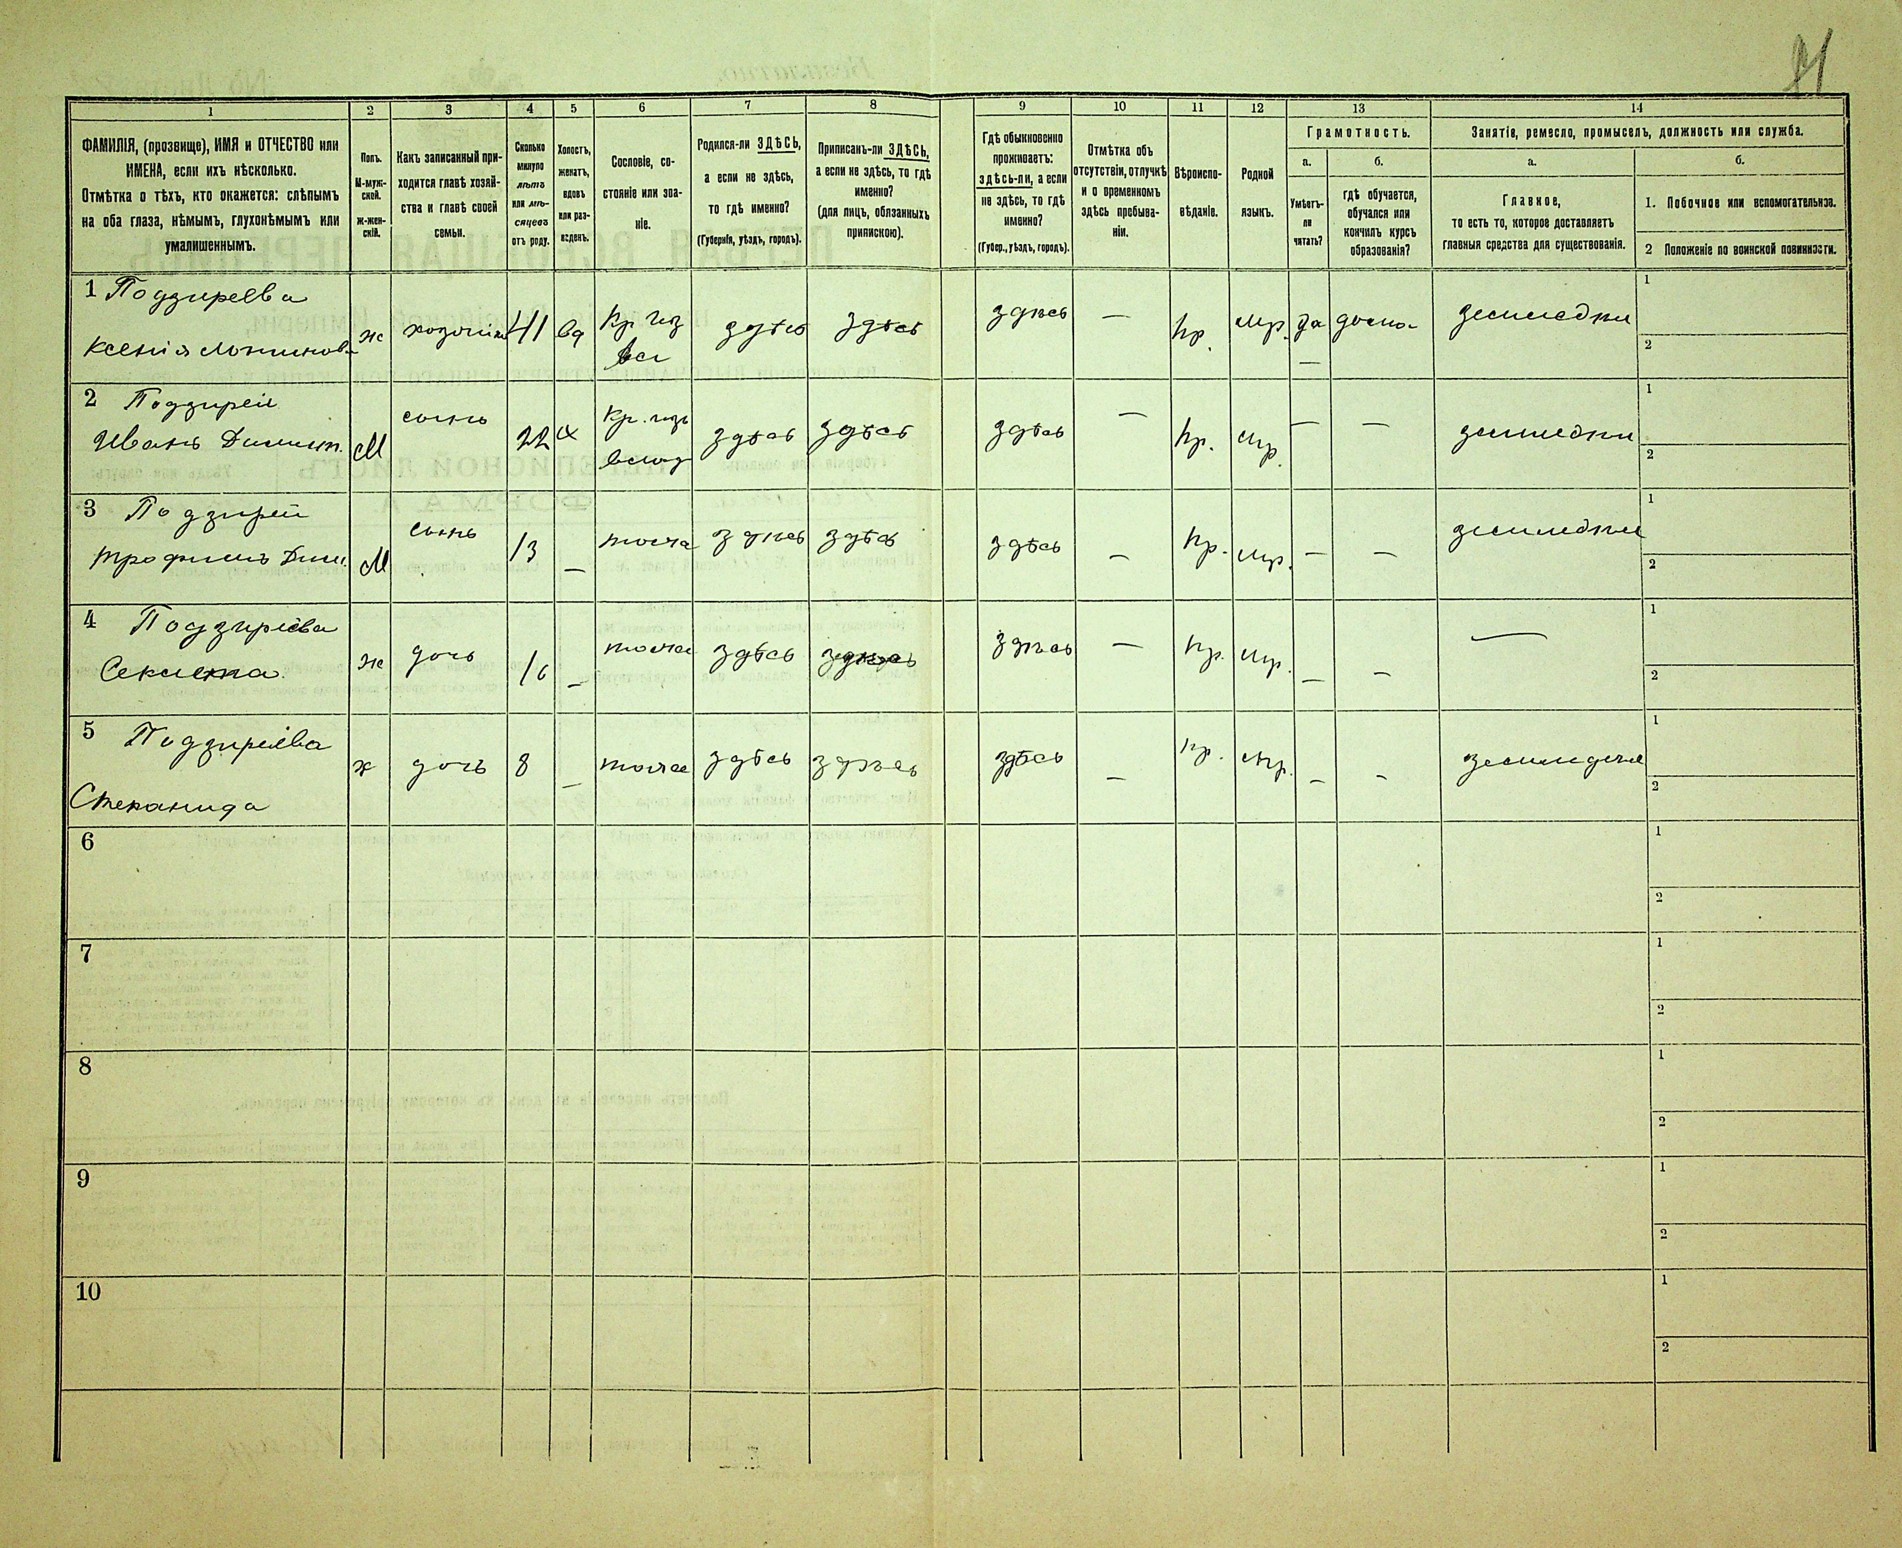 1 2 3 4 5 6 7 8 9 10 11 12 13 14
ФАМИЛІЯ, (прозвище), ИМЯ и ОТЧЕСТВО или
ИМЕНА, если ихъ нѣсколько.
Отмѣтка о тѣхъ, кто окажется: слѣпымъ
на оба глаза, нѣмымъ, глухонѣмымъ или
умалишеннымъ.
Полъ.
М-муж-
ской.
ж-жен-
скій.
Какъ записанный при-
ходится главѣ хозяй-
ства и главѣ своей
семьи.
Сколько
минуло
лѣтъ
или мѣ-
сяцевъ
отъ роду.
Холостъ,
женатъ,
вдовъ
или раз-
веденъ.
Сословіе, со-
стояніе или зва-
ніе.
Родился-ли ЗДѢСЬ,
а если не здѣсь,
то гдѣ именно?
(Губернія, уѣздъ, городъ).
Приписанъ-ли ЗДѢСЬ,
а если не здѣсь, то гдѣ
именно?
(для лицъ, обязанныхъ
припискою).
Гдѣ обыкновенно
проживаетъ:
здѣсь-ли, а если
не здѣсь, то гдѣ
именно?
(Губер., уѣздъ, городъ).
Отмѣтка объ
отсутствіи, отлучкѣ
и о временномъ
здѣсь пребыва-
ніи.
Вѣроиспо-
вѣданіе.
Родной
языкъ.
Грамотность.
а.
Умѣетъ-
ли
читать?
б.
гдѣ обучается,
обучался или
кончилъ курсъ
образованія?
Занятіе, ремесло, промыселъ, должность или служба.
а.
Главное,
то есть то, которое доставляетъ
главныя средства для существованія.
б.
1. Побочное или вспомогательное.
2 Положеніе по воинской повинности.
1 Подзиреева
Ксенія ж хозяйка 41 вд Кр. изъ здѣсь здѣсь здѣсь — пр. мр. да дома земледѣл 1 2
2 Подзирей
Иванъ Димит. М сынъ 22 х Кр. изъ здѣсь здѣсь здѣсь — пр. мр. — — земледѣл 1 2
3 Подзирей
Трофимъ Дим. М сынъ 13 — тоже здѣсь здѣсь здѣсь — пр. мр. — — земледѣл 1 2
4 Подзирева
ж дочь 16 — тоже здѣсь здѣсь здѣсь — пр. мр. — — — 1 2
5 Подзирева
Степанида ж дочь 8 — тоже здѣсь здѣсь здѣсь — пр. мр. — — 1 2
6 1 2
7 1 2
8 1 2
9 1 2
10 1 2